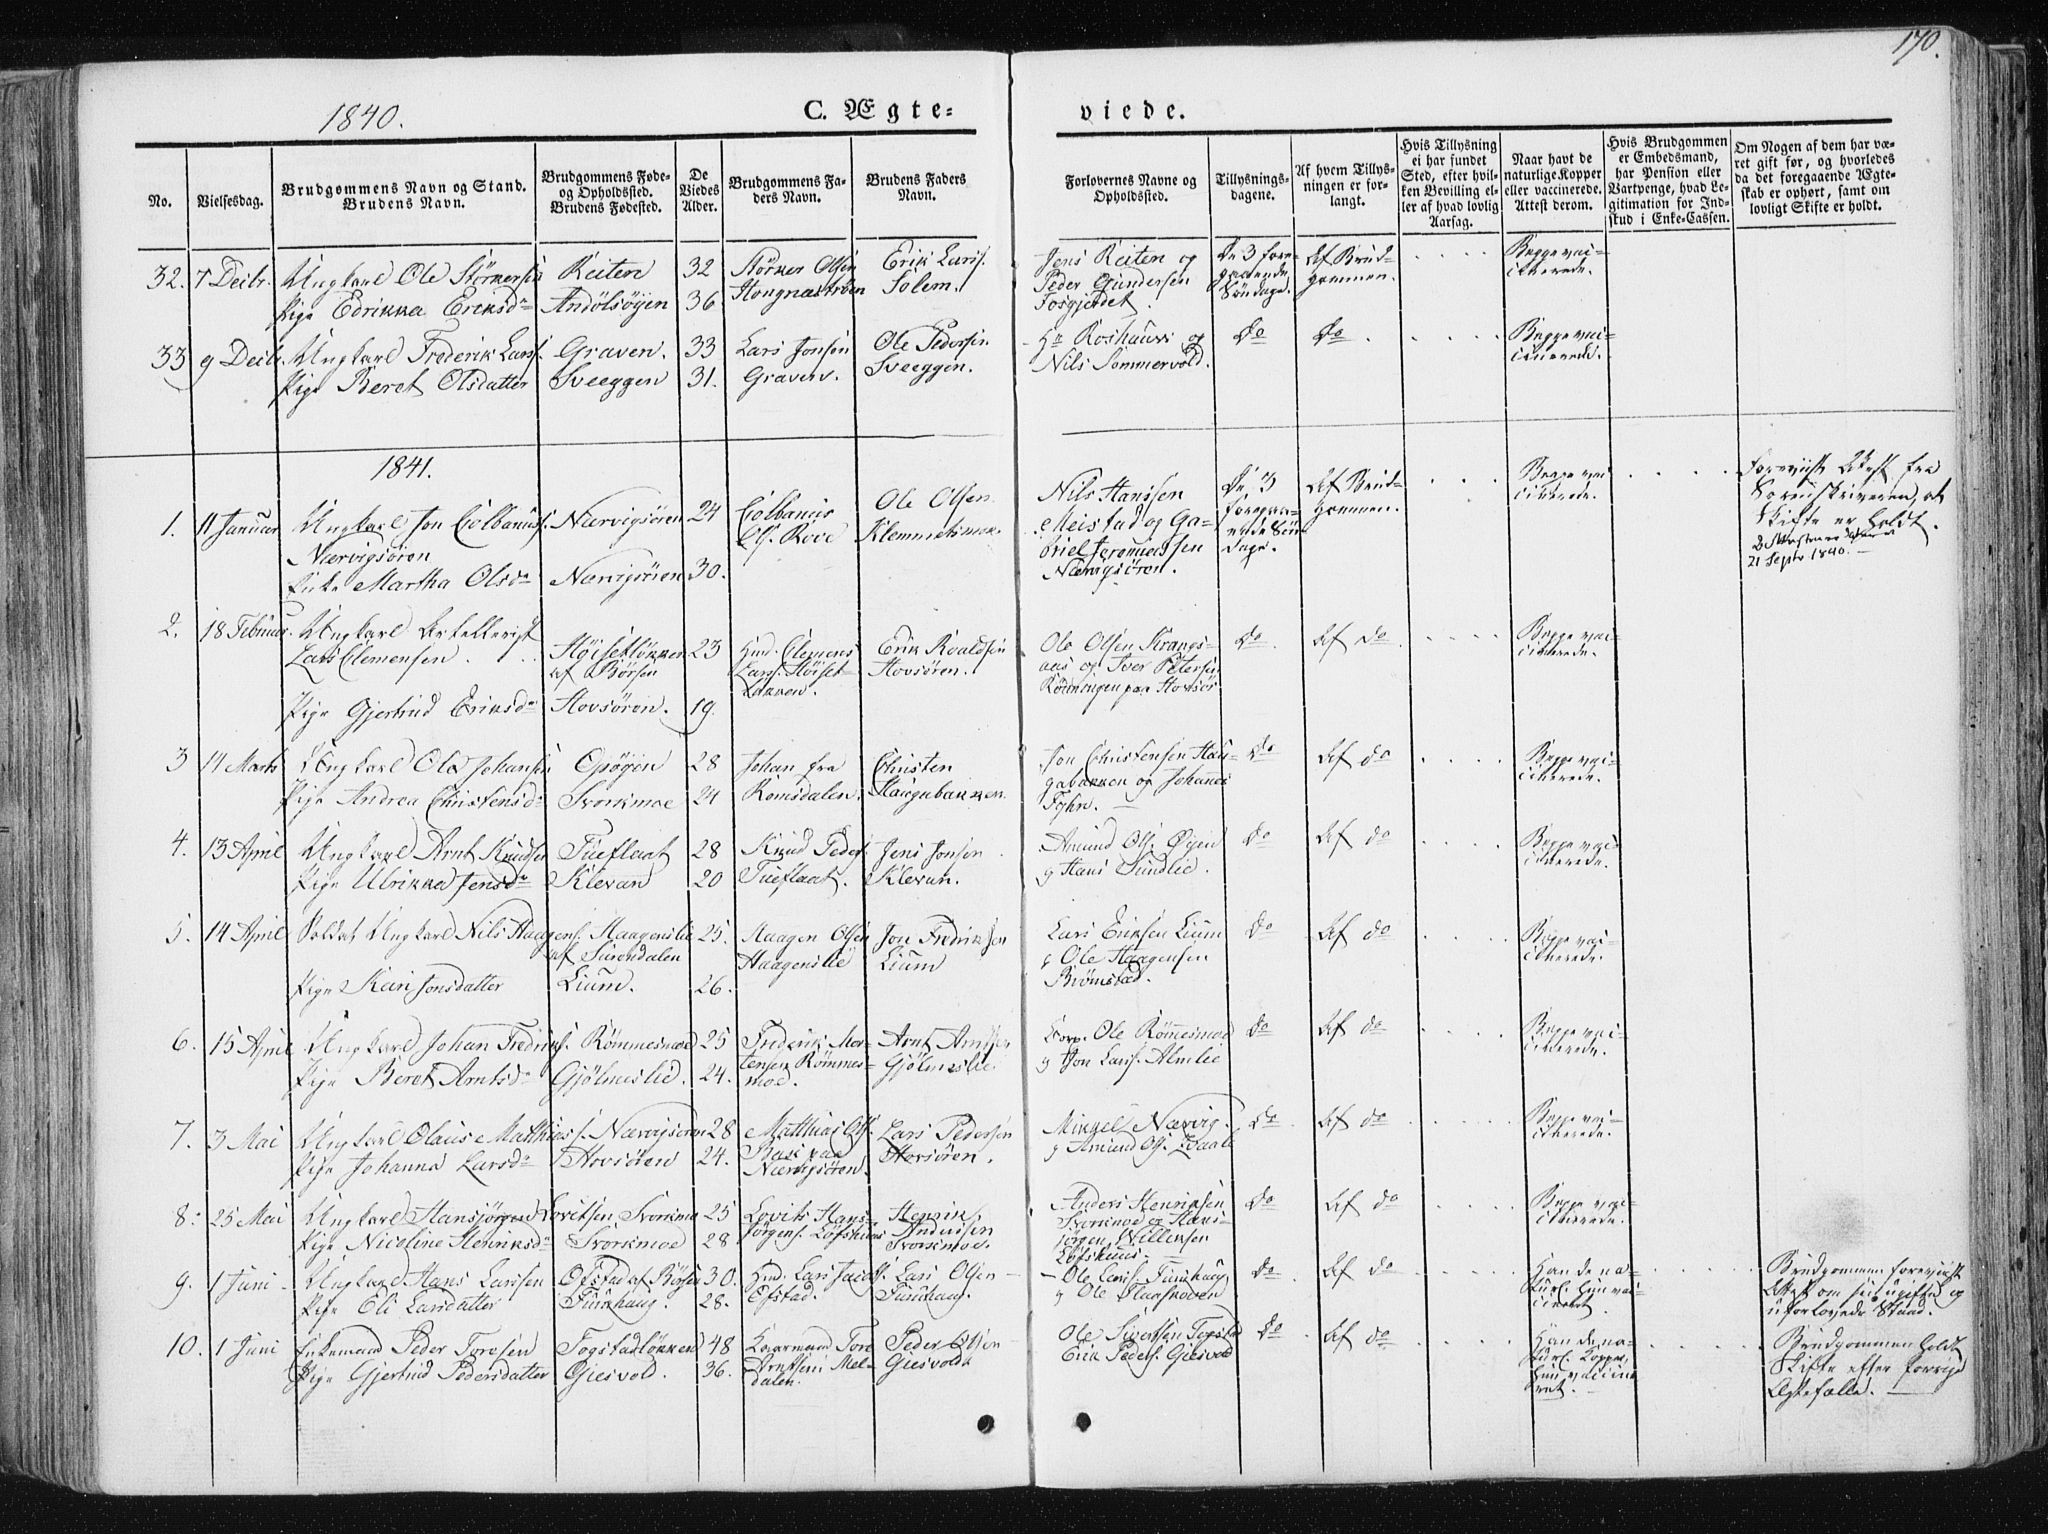 170.
1840.
C. Ægte=
viede.
No.
Vielsesdag.
Brudgommens Navn og Stand.
Brudens Navn.
Brudgommens Føde-
og Opholdssted.
Brudens Fødested.
De
Viedes
Alder.
Brudgommens Fa-
ders Navn.
Brudens Faders
Navn.
Forlovernes Navne og
Opholdssted.
Tillysnings-
dagene.
Af hvem Tillys-
ningen er for-
langt.
Hvis Tillysning
ei har fundet
Sted, efter hvil-
ken Bevilling el-
ler af hvad lovlig
Aarsag.
Naar havt de
naturlige Kopper
eller vaccinerede.
Attest derom.
Hvis Brudgommen
er Embedsmand,
har Pension eller
Vartpenge, hvad Le-
gitimation for Ind-
skud i Enke-Cassen.
Om Nogen af dem har væ-
ret gift før, og hvorledes
da det foregaaende Ægte-
skab er ophørt, samt om
lovligt Skifte er holdt.
32. 7 Decbr. Ungkarl Ole Störkersen
Pige Edrikka Eriksdr
Reiten
Andölsöyen
32
36
Störker Olsen
Erik Lars.
Solem.
Jens Reiten og
Peder Gundersen
Fosgjerdet.
De 3 fore-
gaaende
Söndage.
Af Brud-
gommen.
Begge vac-
cinerede.
33 9 Decbr. Ungkarl Frederik Lars.
Pige Beret Olsdatter
Graven.
Sveeggen
33
31.
Lars Jonsen
Graven.
Ole Pedersen
Sveeggen.
Nils Sommervold.
Do
Do
Begge vac-
cinerede.
1841.
1. 11 Januar Ungkarl Jon Colbanus.
Nærvigsören
Enke Martha Olsdr
Nærvigsören
Nærvigsören
24
30.
Colbanus
Ols. Rove
Ole Olsen
Klemmetsmoe.
Nils Hanssen
Meistad og Ga-
briel Jeremiassen
Nærvigsören.
De 3
foregaa-
ende Sön-
dage.
Af Brud-
gommen.
Begge vac-
cinerede.
Foreviist Attest fra
Sorenskriveren, at
Skifte er holdt.
21 Septr 1840.
2. 18 Februar. Ungkarl Artillerist
Lars Clemensen.
Pige Gjertrud Eriksdr
Höisetlökken
af Börsen
Hovsören.
23
19.
Hmd. Clemens
Lars. Höiset-
lökken.
Erik Roaldsen
Hovsören.
Ole Olsen Krangs-
aas og Iver Petersen
Rönningen paa Hovsör.
Do
Af do
Begge vac-
cinerede.
3 14 Marts Ungkarl Ole Johansen
Pige Andrea Christensdr
Opöyen
Svorkmoe
28
24
Johan fra
Romsdalen.
Christen
Haugabakken.
Jon Christensen Hau-
gabakken og Johannes
Fyhn.
Do
Af do
Begge vac-
cinerede.
4. 13 April Ungkarl Arnt Knudsen
Pige Ulrikka Jensdr
Tueflaat
Klevan
28
20
Knud Peders.
Tueflaat.
Jens Jonsen
Klevan.
Amund Ols. Öyen
og Hans Sundlie.
Do
Af do
Begge vac-
cinerede.
5. 14 April Soldat Ungkarl Nils Haagens.
Pige Kari Jonsdatter
Haagenslie
af Surendalen
Lium.
25.
26.
Haagen Olsen
Haagenslie
Jon Fredriksen
Lium
Lars Eriksen Lium
og Ole Haagensen
Brömstad.
Do
Af do
Begge vac-
cinerede.
6. 15 April Ungkarl Johan Fredriks.
Pige Beret Arntsdr
Römmesmoe
Gjölmeslie.
25
24.
Frederik Mor-
tensen Römmes-
moe.
Arnt Arntsen
Gjölmeslie
Corp. Ole Römmesmoe
og Jon Lars. Almlie
Do
Af do
Begge vac-
cinerede.
7. 3 Mai Ungkarl Olaus Matthias.
Pige Johanna Larsdr
Nærvigsören
Hovsören
28
24.
Matthias Ols.
Bas paa
Nærvigsören.
Lars Pedersen
Hovsören.
Mikkel Nærvig.
og Amund Ols. Qvaale
Do
Af do
Begge vac-
cinerede.
8. 25 Mai Ungkarl Hansjörgen Lovitsen
Pige Nicoline Henriksdr
Svorkmoe
Svorkmoe
25
28
Lovits Hans-
jörgens. Löfshuus
Henrik
Anderssen
Svorkmoe.
Anders Henriksen
Svorkmoe og Hans-
jörgen Willersen
Löfshuus.
Do
Af do
Begge vac-
cinerede.
9. 1 Juni Ungkarl Hans Larssen
Pige Eli Larsdatter
Ofstad af Börsen
Tuushaug.
30.
28.
Hmd. Lars Jacobs.
Ofstad.
Lars Olsen
Tuushaug.
Ole Lars. Tuushaug
og Ole Haaskoven
Do
Af do
Han de na-
turl. Hun vac-
cineret.
Brudgommen foreviist
Attest om sin ugifte og
uforlovede Stand.
10. 1 Juni Enkemand Peder Toresen
Pige Gjertrud Pedersdatter
Fogstadlökken
Gjesvold.
48
36.
Huusmand Tore
Arntsen Mel-
dalen.
Peder Olsen
Giesvold
Ole Sivertsen Fogstad
Erik Peders. Gjesvold
Do
Af do
Han de na-
turl. Kopper,
Hun vaccine-
ret.
Brudgommen holdt
Skifte efter forrige
Ægtefælle.